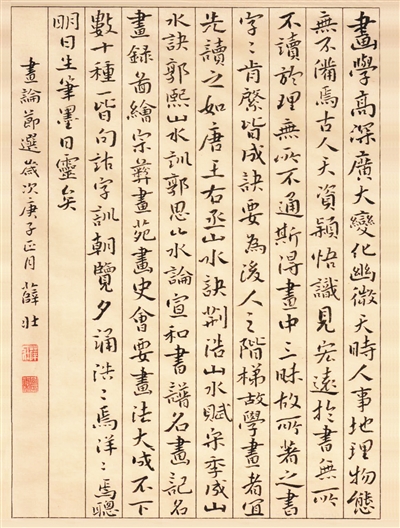 畫學高深廣大變化幽微天時人事地理物態
無不備焉古人天資穎悟識見宏遠於書無所
不讀於理無所不通斯得畫中三昧故所著之書
字〻肯綮皆成訣要為後人之階梯故學畫者宜
先讀之如唐王右丞山水訣荊浩山水賦宋李成山
水訣郭熙山水訓郭思山水論宣和書譜名畫記名
畫錄圖繪宗彝畫苑畫史會要畫法大成不下
數十種一皆句詁字訓朝覽夕誦浩〻焉洋〻焉聰
明日生筆墨日靈矣
畫論節選歲次庚子正月薛壯